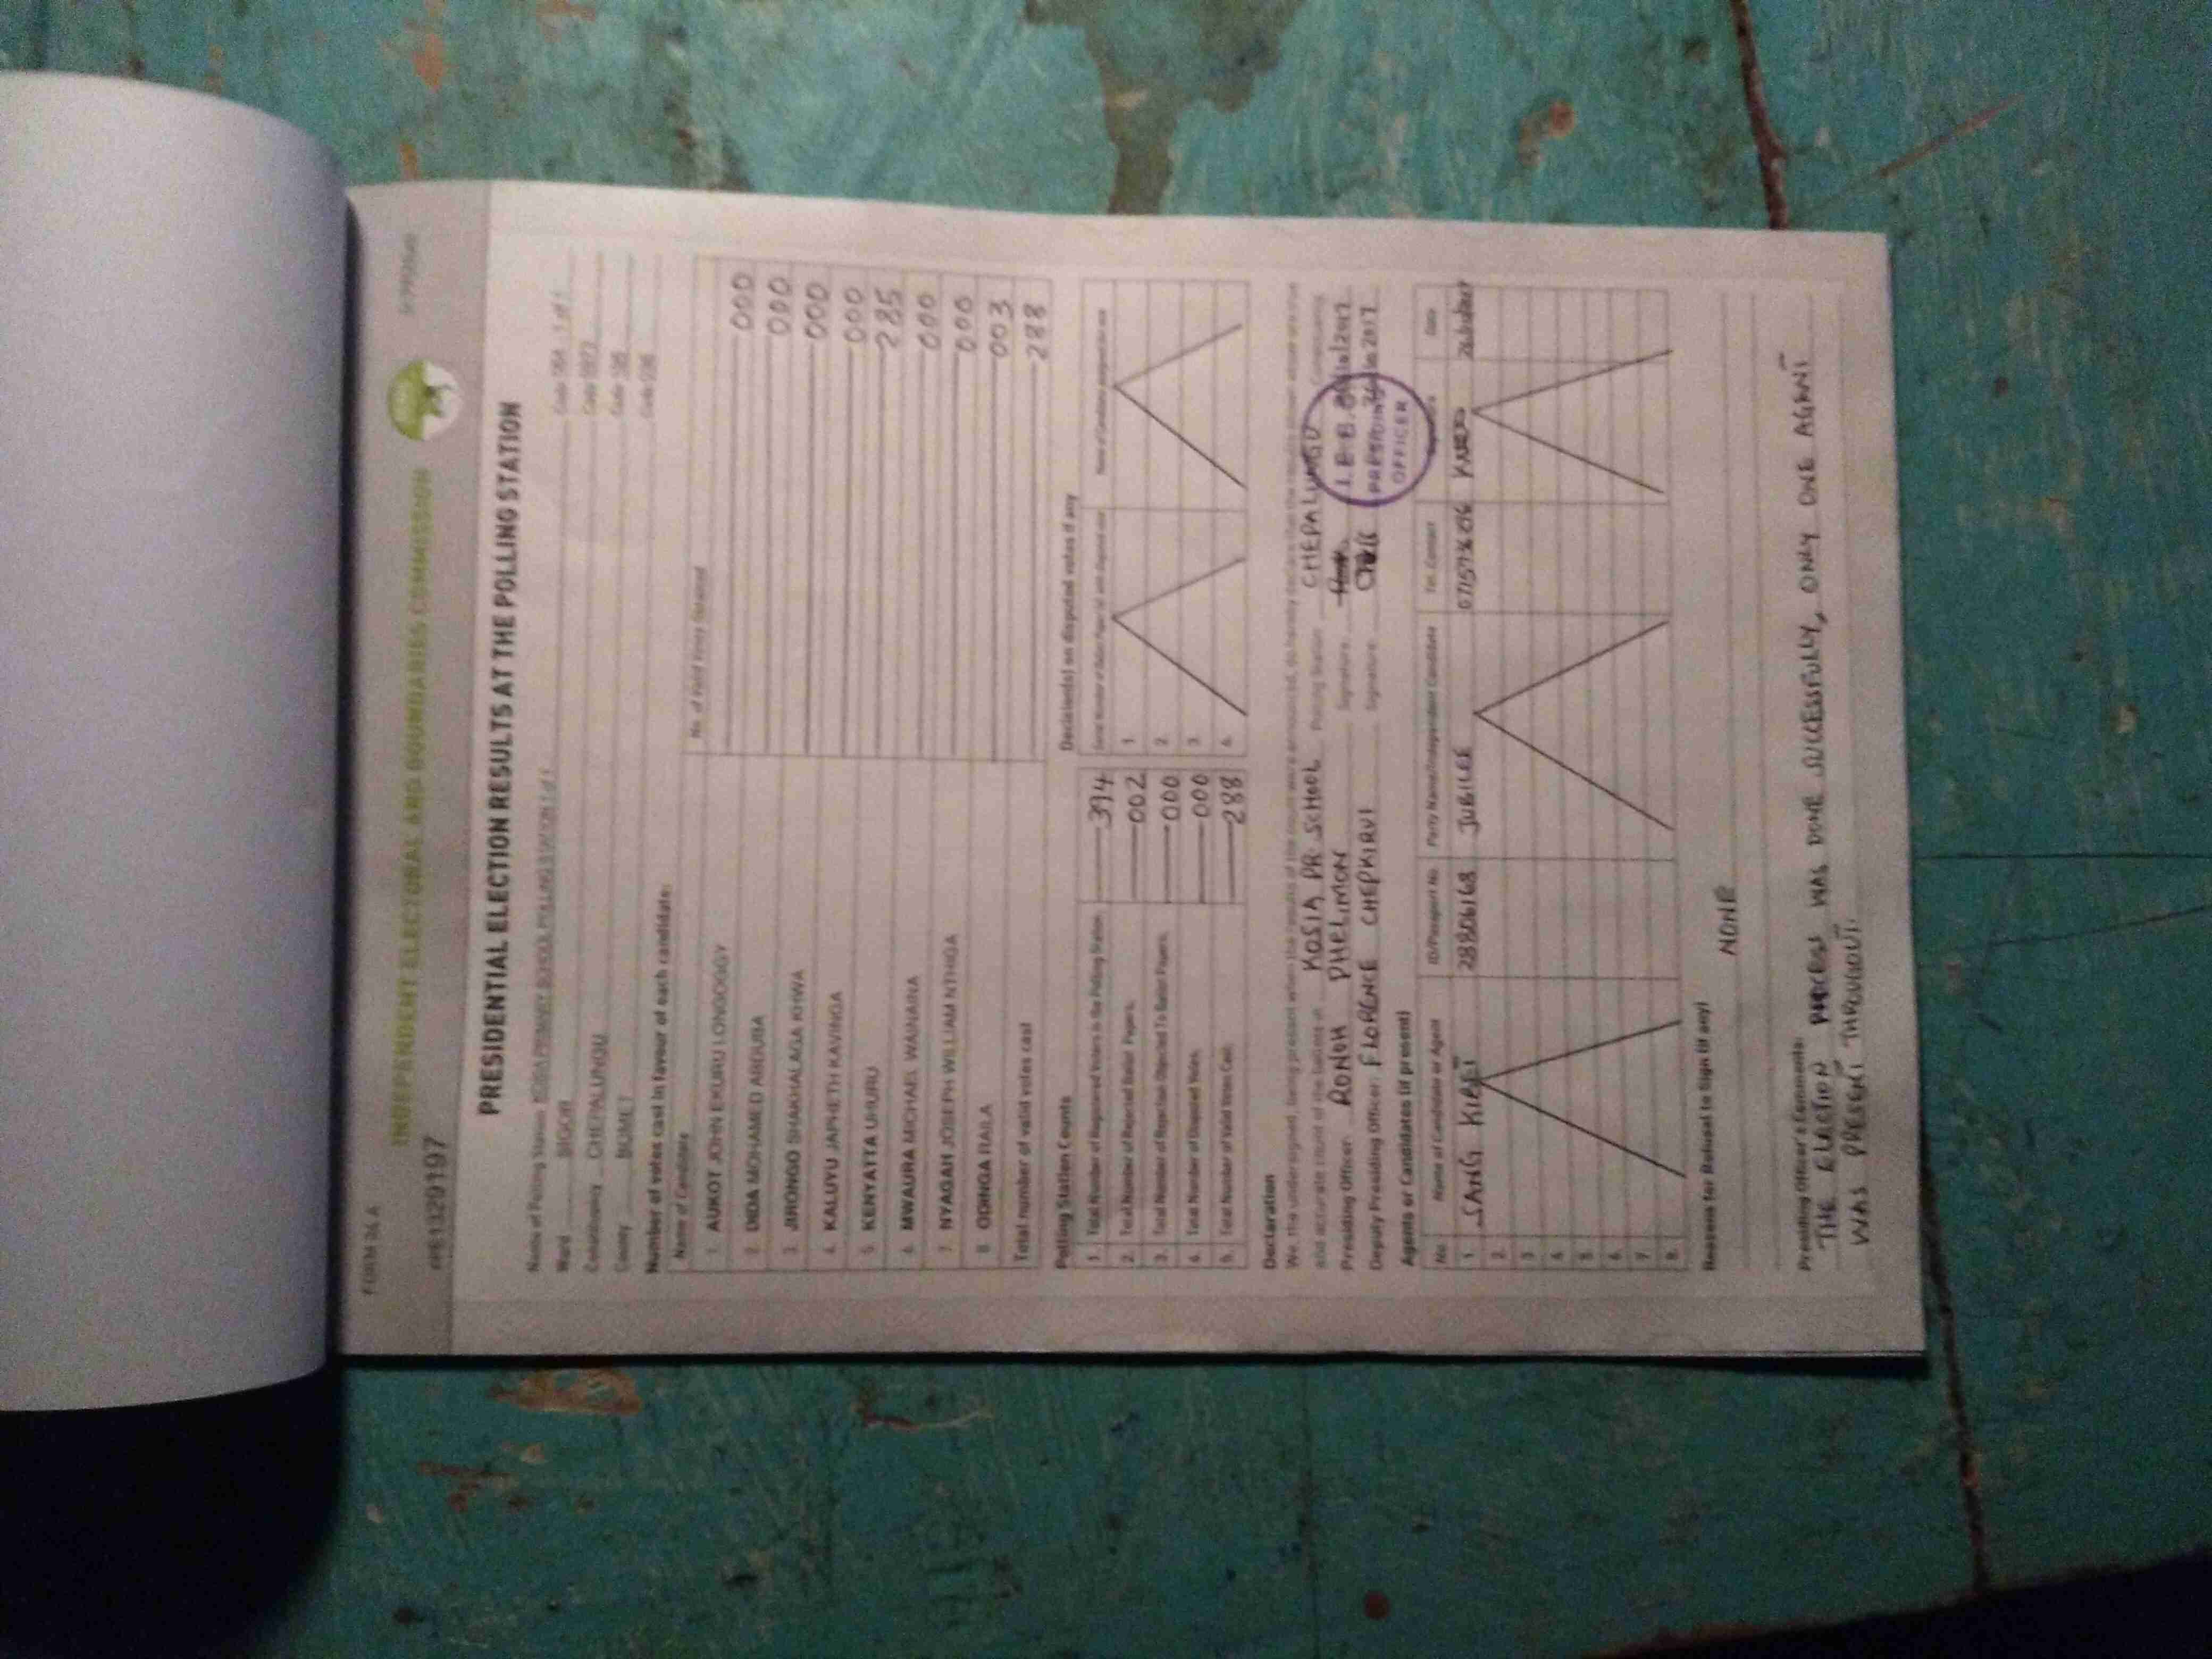 FORM 34 A
INDEPENDENT ELECTORAL AND BOUNDARIES COMMISSION
PRESIDENTIAL ELECTION RESULTS AT THE POLLING STATION
Name of Polling Station KOSIA PRIMARY SCHOOL POLLING STATION 1 of 1 Code 1 of 1
Ward SIGOR Code
Constituency CHEPALUNGU Code
County BOMET Code 036
Number of votes cast in favour of each candidate:
Name of Candidate No. of Valid Votes Obtained
1. AUKOT JOHN EKURU LONGOGGY 000
2. DIDA MOHAMED ABDUBA 000
3. JIRONGO SHAKHALAGA KHWA 000
4. KALUYU JAPHETH KAVINGA 000
5. KENYATTA UHURU 285
6. MWAURA MICHAEL WAINAINA 000
7. NYAGAH JOSEPH WILLIAM NTHIGA 000
8. ODINGA RAILA 003
Total number of valid votes cast 288
Polling Station Counts Decision(s) on disputed votes if any
1. Total Number of Registered Voters in the Polling Station 394 1.
2. Total Number of Rejected Ballot Papers 002 2.
3. Total Number of Rejection Objected To Ballot Papers 000 3.
4. Total Number of Disputed Votes 000 4.
5. Total Number of Valid Votes Cast 288
Declaration
We, the undersigned, being present when the results of the count were announced, do hereby declare that the results shown above are true
and accurate count of the ballots in KOSIA PR SCHOOL Polling Station CHEPALUNGU Constituency
Presiding Officer: RONOH PHELIMON Signature
Deputy Presiding Officer: FLORENCE CHEPKIRUI Signature
I.E.B.C
PRESIDING
OFFICER
Agents or Candidates (if present)
No. Name of Candidate or Agent ID/Passport No. Party Name/Independent Candidate Tel. Contact Signature Date
1. SANG KIBET 28806168 JUBILEE
2.
3.
4.
5.
6.
7.
8.
Reasons for Refusal to Sign (if any)
NONE
Presiding Officer's Comments:
THE ELECTION PROCESS WAS DONE SUCCESSFULLY, ONLY ONE AGENT
WAS PRESENT THROUGOUT.